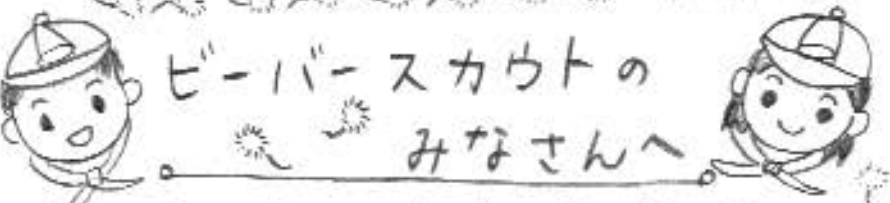 ビーバースカウトの
みなさんへ